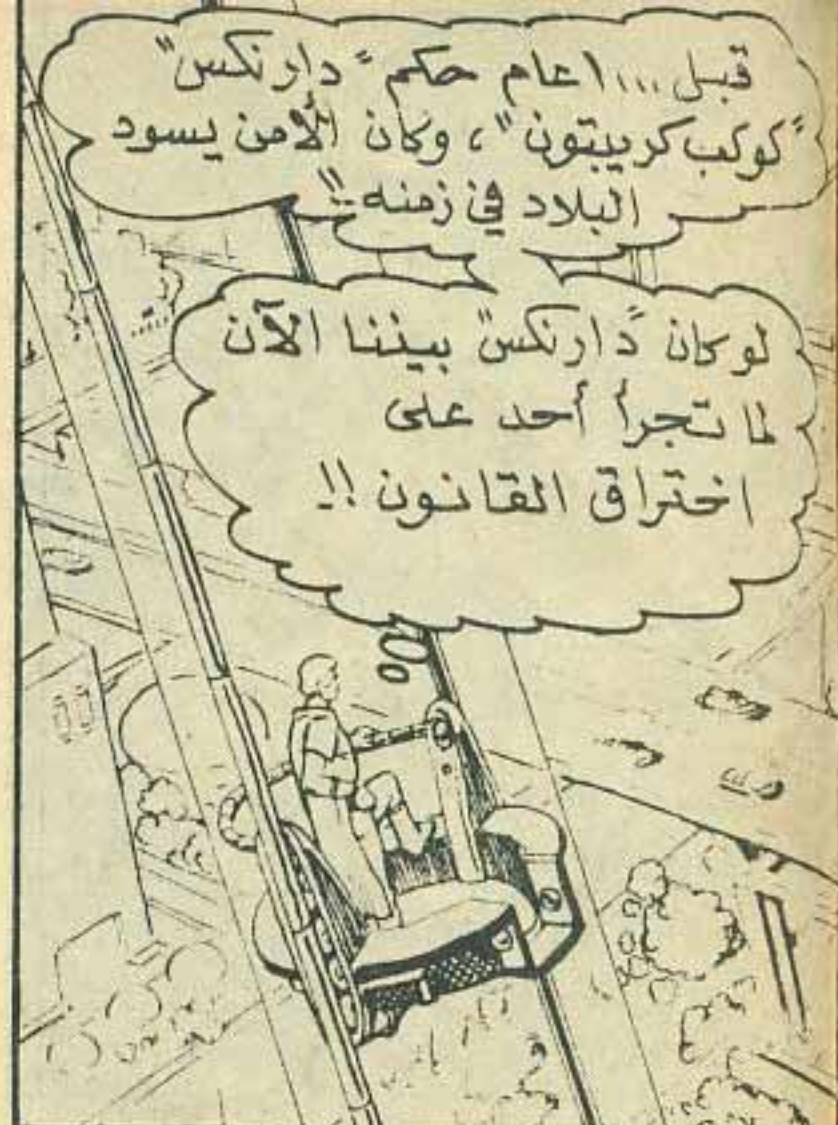 قبل ١٠٠٠ عام حكم "دارنكس"
"كوكب كريبتون"، وكان الأمن يسود
البلاد في زمنه..!!
لو كان "دارنكس" بيننا الآن
لما تجرأ أحد على
اختراق القانون!!